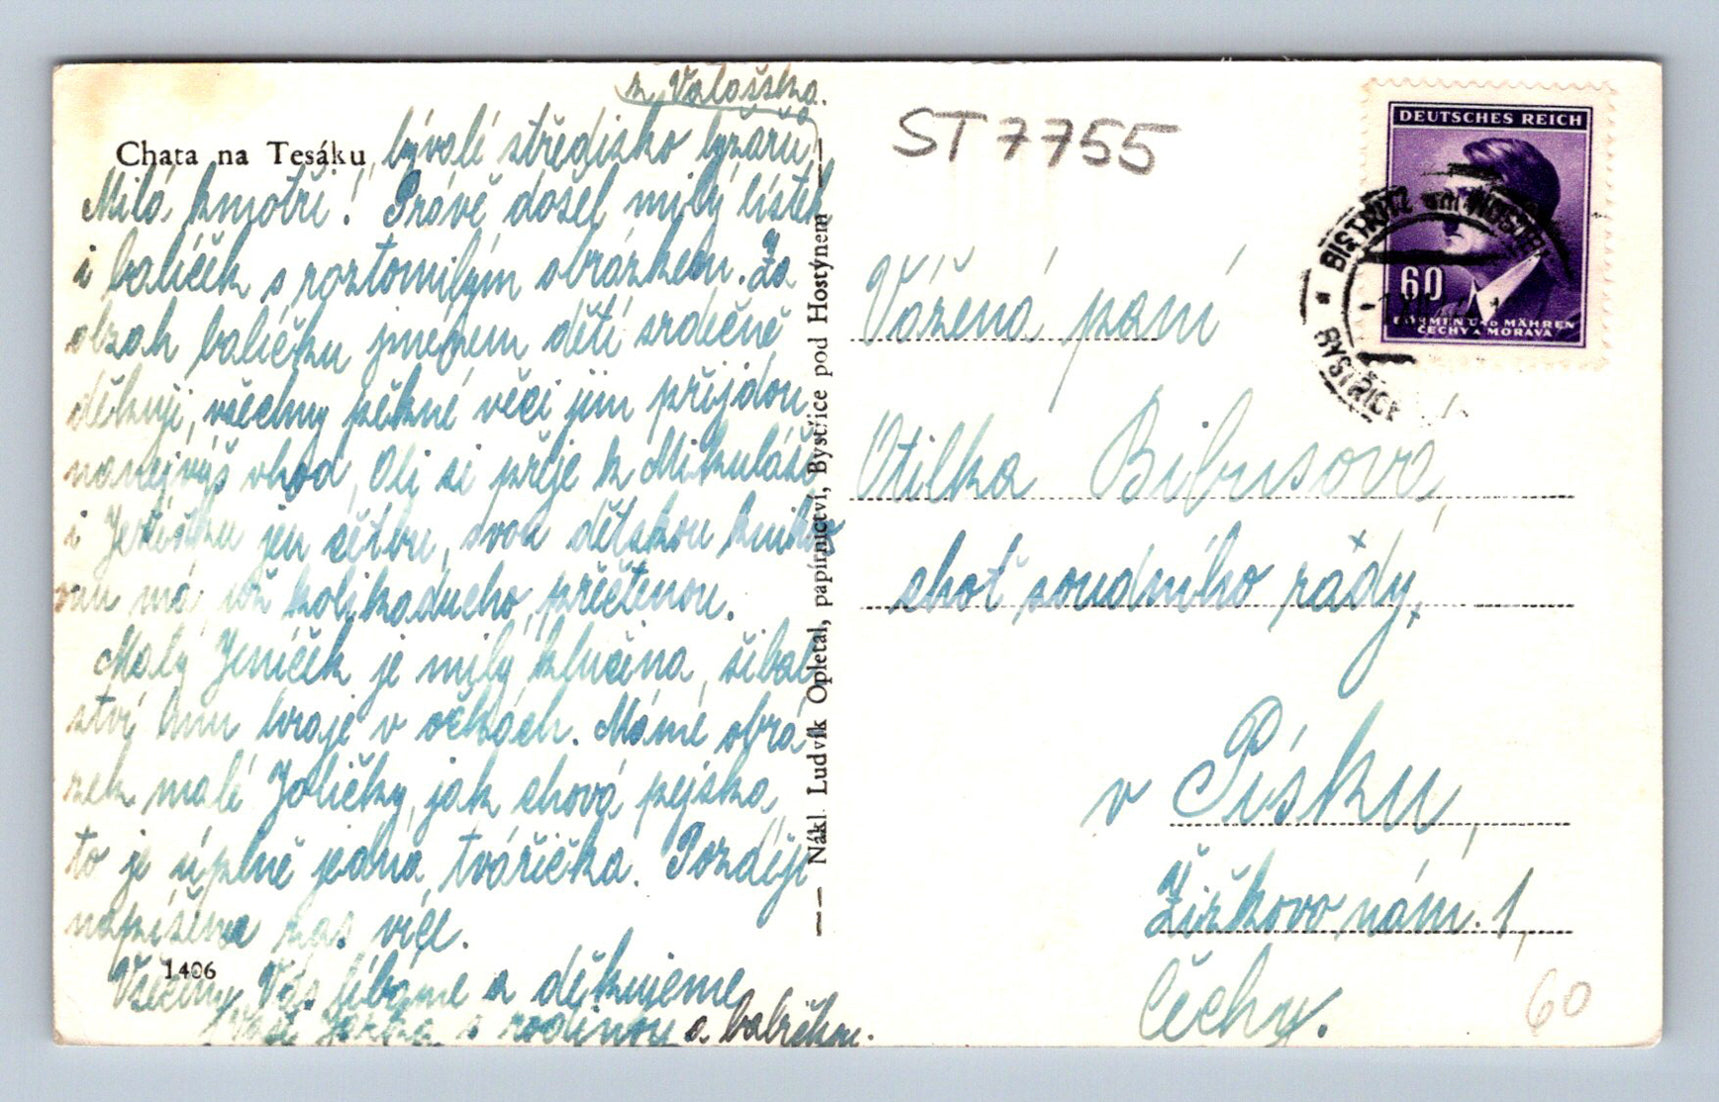 z Valašska.
Chata na Tesáku
bývalé středisko lyžařů
Milá kmotři! Právě došel milý lístek
i balíček s roztomilým obrázkem. Za
obsah balíčku jménem dětí srdečně
děkuji, všechny pěkné věci jim přijdou
nanejvýš vhod, Oli si přeje k Mikuláši
i Ježíšku jen četbu, svou dětskou knihov
nu má již kolikaducho přečtenou.
Malý Jeníček je milý klučina, šibal
ství mu hraje v očkách. Máme obrá
zek malé Joličky, jak chová pejska,
to je úplně jedna tvářička. Později
napíšeme zas více.
1406
Všechny Vás líbáme a děkujeme
Vaši s rodinou a babičkou.
Nákl. Ludvík Opletal, papírnictví, Bystřice pod Hostýnem
ST 7755
DEUTSCHES REICH
60
BÖHMEN UND MÄHREN
ČECHY A MORAVA
BISTRITZ am HOSTEIN
BYSTŘICE
Vážená paní
Otilka Bibusová,
choť soudního rády,
v Písku,
Žižkovo nám. 1,
Čechy.
60